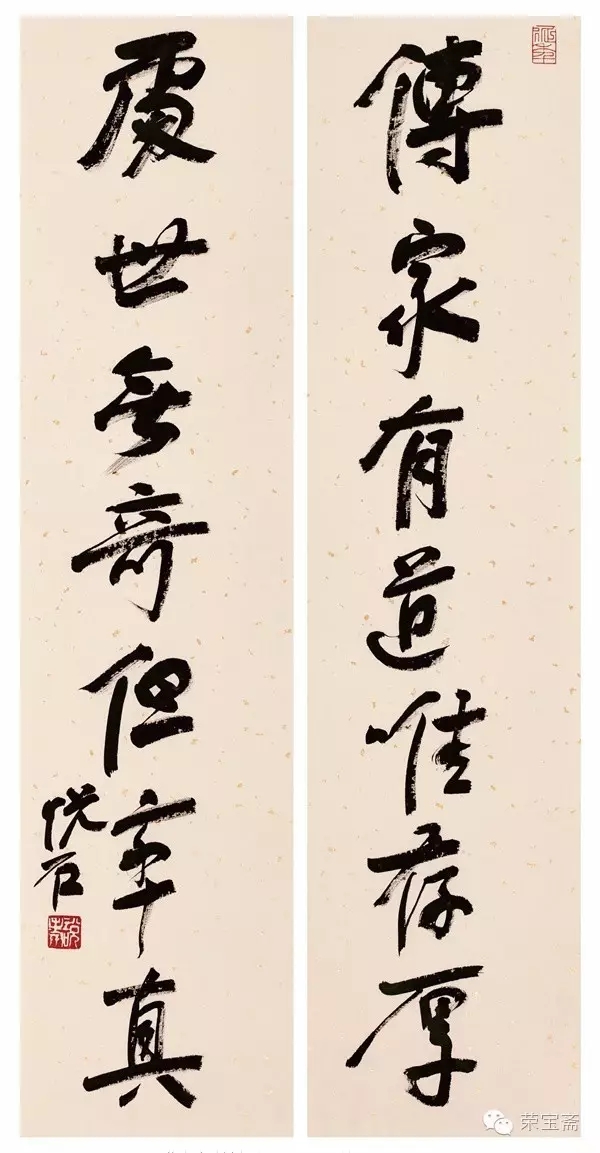 傳家有道唯存厚
處世無奇但率真
悦石
荣宝斋